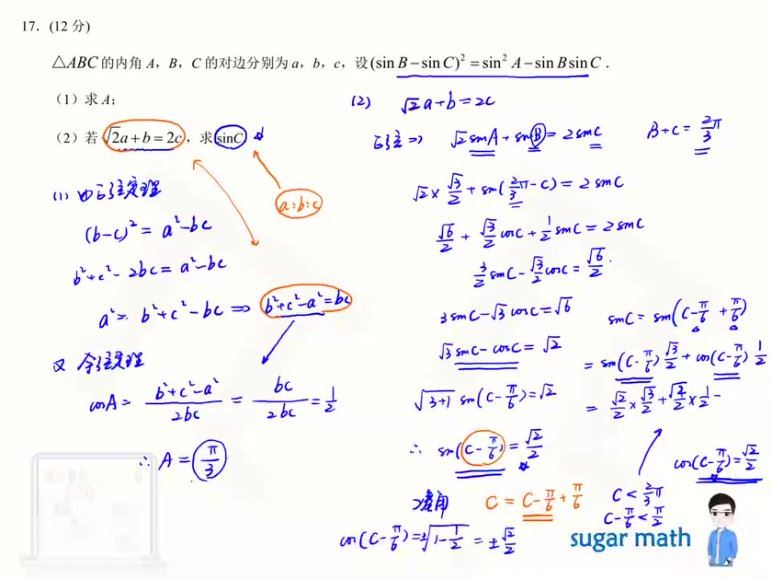 17. (12 分)
△ABC 的内角 A, B, C 的对边分别为 a, b, c, 设 (sin B − sin C)² = sin² A − sin B sin C.
(1) 求 A;
(2) 若 √2a + b = 2c, 求 sinC.
a:b:c
(1) 由正弦定理
(b−c)² = a²−bc
b²+c²−2bc = a²−bc
a² = b²+c²−bc ⇒ b²+c²−a²=bc
又 余弦定理
cosA = (b²+c²−a²)/2bc = bc/2bc = 1/2
∴ A = π/3
(2) √2a+b=2c
正弦 ⇒ √2sinA+sinB=2sinC B+C=2π/3
√2×√3/2+sin(2/3π−C)=2sinC
√6/2+√3/2cosC+1/2sinC=2sinC
3/2sinC−√3/2cosC=√6/2
3sinC−√3cosC=√6
√3sinC−cosC=√2
√(3+1) sin(C−π/6)=√2
∴ sin(C−π/6)=√2/2
凑角 C=C−π/6+π/6
cos(C−π/6)=±√(1−1/2)=±√2/2
sinC=sin(C−π/6+π/6)
=sin(C−π/6)√3/2+cos(C−π/6)1/2
=√2/2×√3/2+√2/2×1/2=
cos(C−π/6)=√2/2
C<2/3π
C−π/6<π/2
sugar math